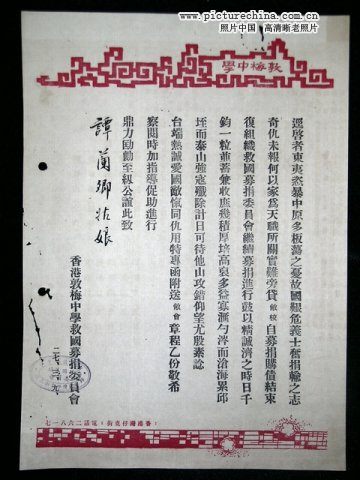 www.picturechina.com.cn
照片中国 | 高清晰老照片
學中梅敦
逕啓者東夷肆暴中原多板蕩之憂故國艱危義士奮捐輸之志
奇仇未報何以家爲天職所關實難旁貸敝校自募捐購債結束
復組織救國募捐委員會繼續募捐進行鼓以精誠濟之時日千
鈞一粒並蓄兼收庶幾積厚培高裒多益寡滙勺涔而滄海累邱
垤而泰山強寇殲除計日可待他山攻錯仰望尤殷素諗
台端熱誠愛國敵愾同仇用特專函附送敝會章程乙份敬希
察閱時加指導促助進行
鼎力回勷至級公誼此致
譚蘭卿姑娘
香港敦梅中學救國募捐委員會
七一八六二話電：街克仔灣港香